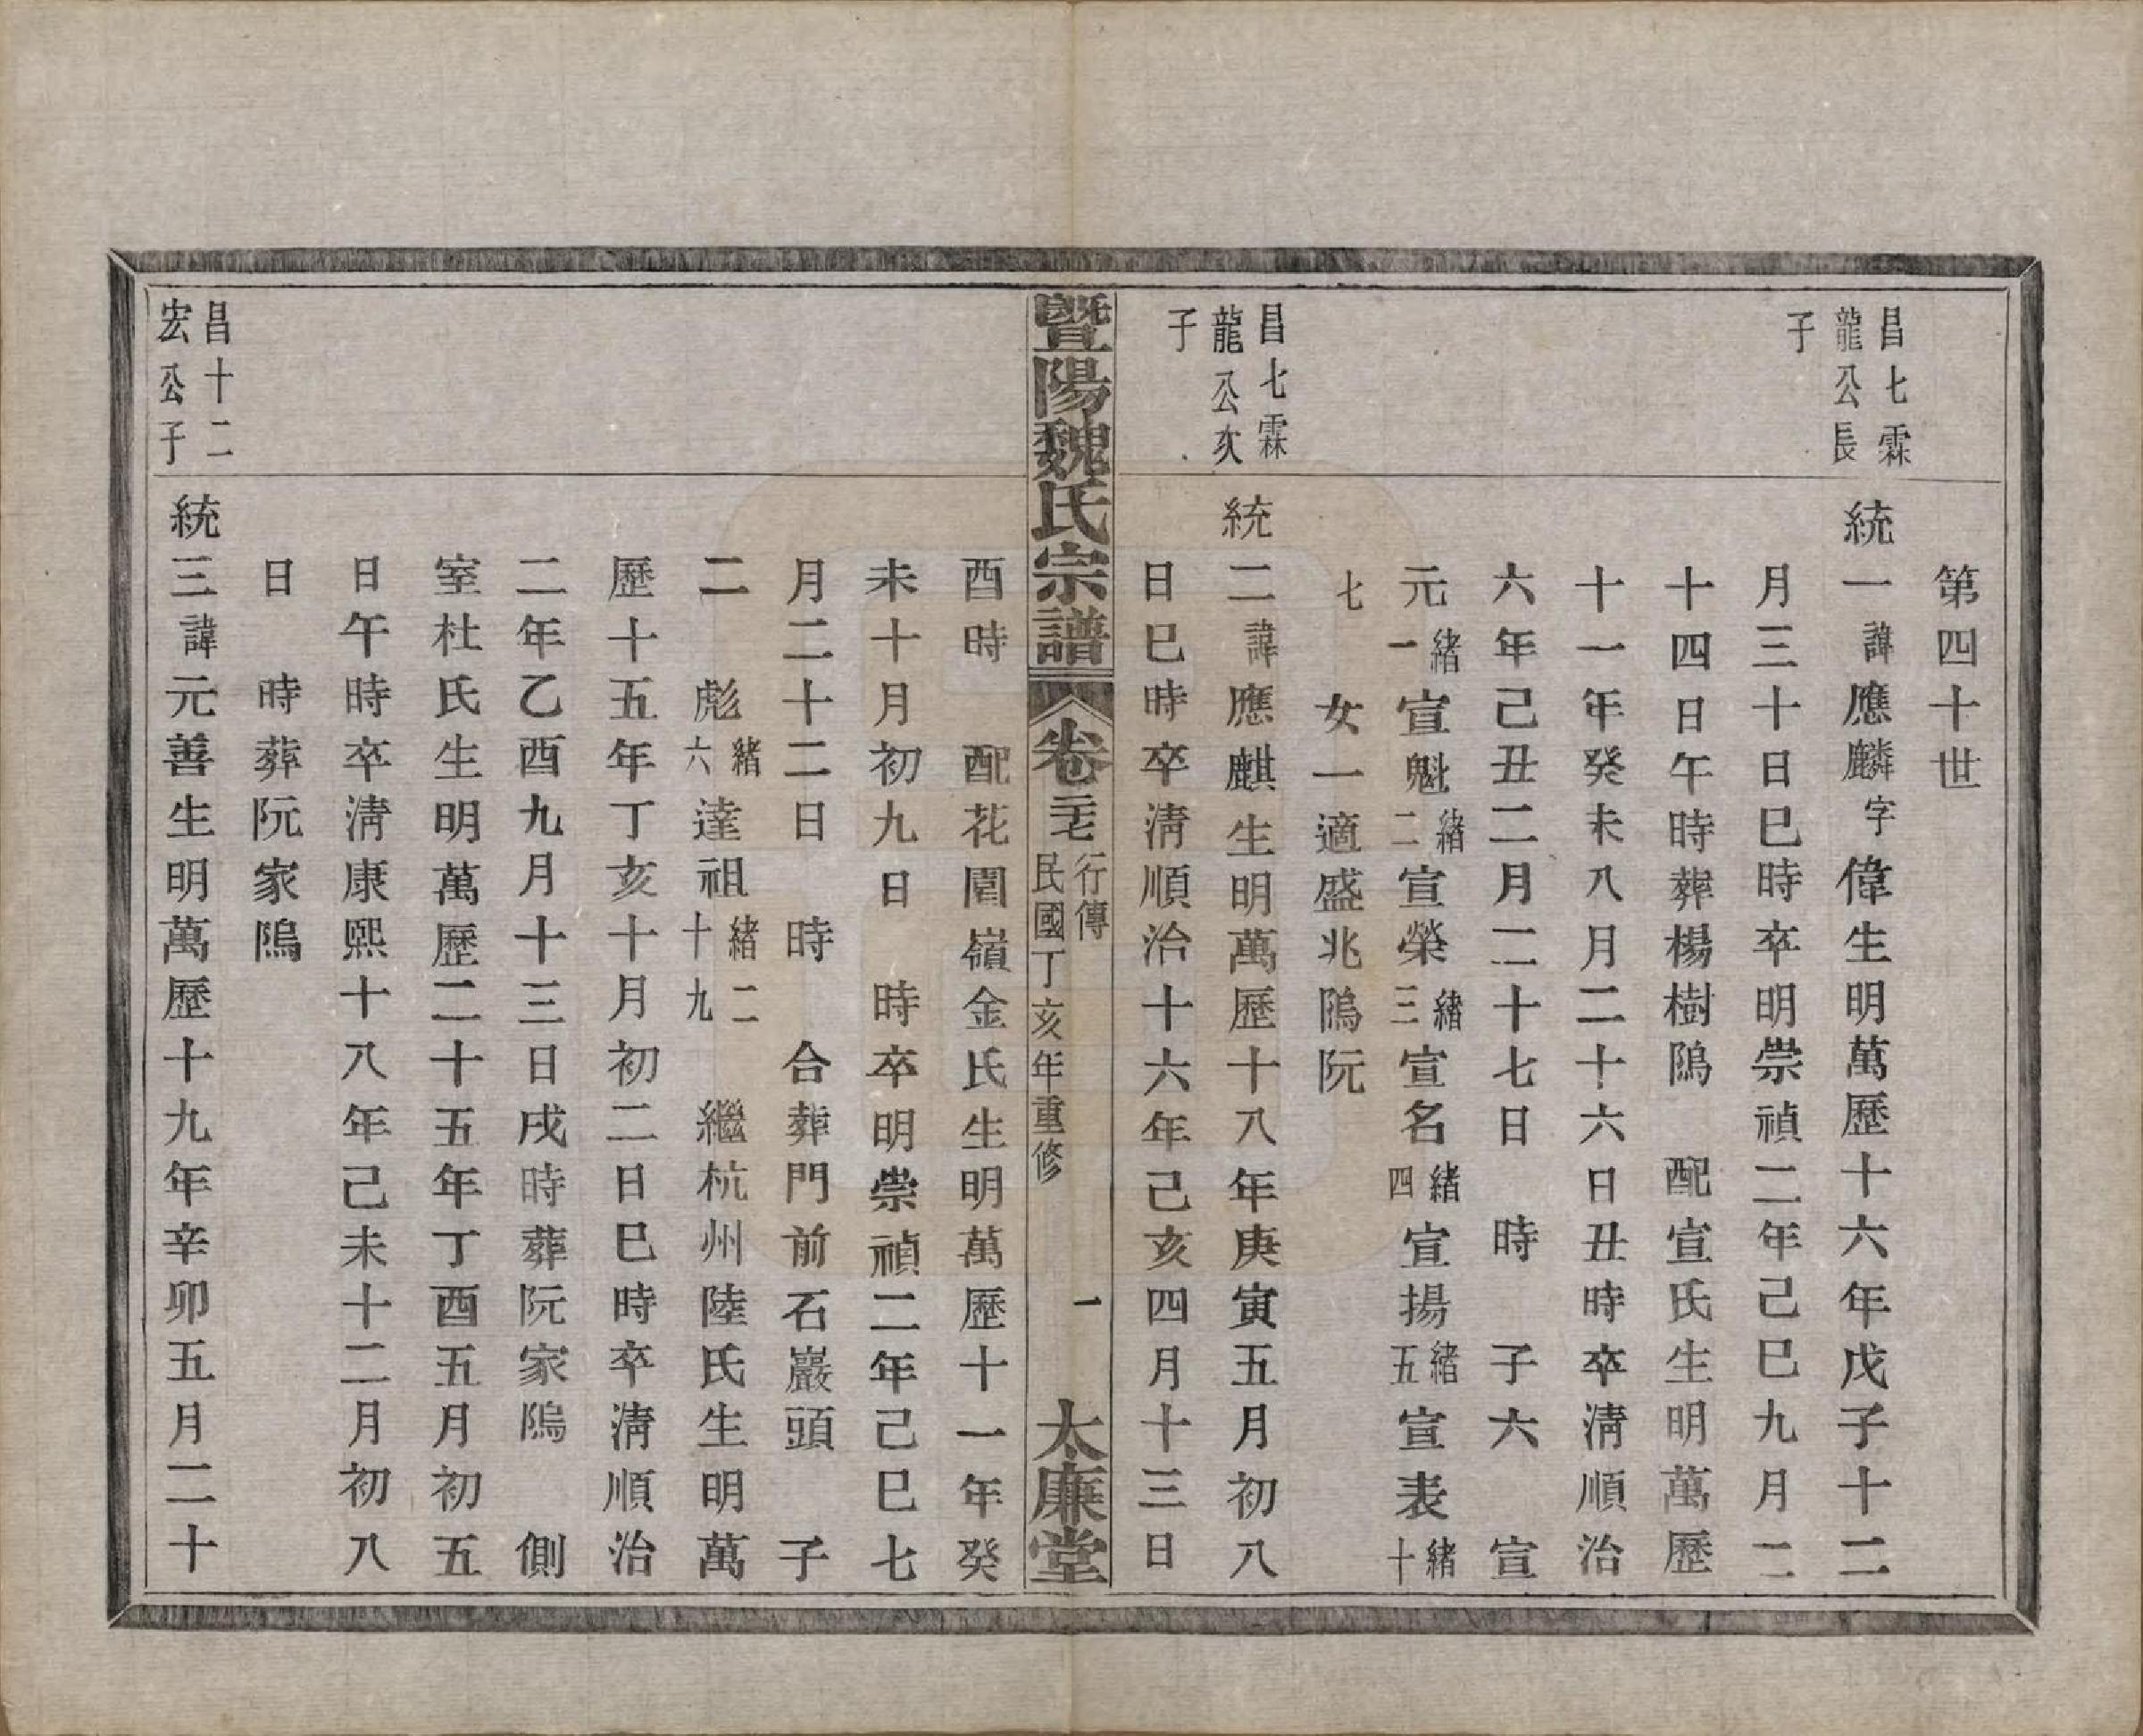 第四十世
昌七霖
龍公長
子
統一諱應麟字偉生明萬歷十六年戊子十二
月三十日巳時卒明崇禎二年己巳九月二
十四日午時葬楊樹隝 配宣氏生明萬歷
十一年癸未八月二十六日丑時卒淸順治
六年己丑二月二十七日 時 子六 宣
元緒一宣魁緒二宣榮緒三宣名緒四宣揚緒五宣表緒十
七 女一適盛兆隝阮
昌七霖
龍公次
子
統二諱應麒生明萬歷十八年庚寅五月初八
日巳時卒淸順治十六年己亥四月十三日
暨陽魏氏宗譜 卷二七 行傳 民國丁亥年重修 一 太廉堂
酉時 配花園嶺金氏生明萬歷十一年癸
未十月初九日 時卒明崇禎二年己巳七
月二十二日 時 合葬門前石巖頭 子
二 彪緒六達祖緒二十九 繼杭州陸氏生明萬
歷十五年丁亥十月初二日巳時卒淸順治
二年乙酉九月十三日戌時葬阮家隝 側
室杜氏生明萬歷二十五年丁酉五月初五
日午時卒淸康熙十八年己未十二月初八
日 時葬阮家隝
昌十二
宏公子
統三諱元善生明萬歷十九年辛卯五月二十